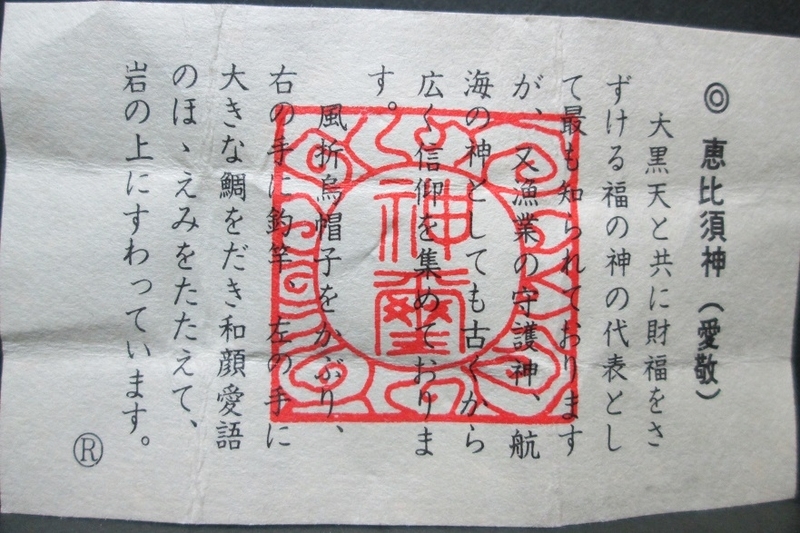 ◎ 恵比須神（愛敬）
大黒天と共に財福をさ
ずける福の神の代表とし
て最も知られております
が、又漁業の守護神、航
海の神としても古くから
広く信仰を集めておりま
す。
風折烏帽子をかぶり、
右の手に釣竿、左の手に
大きな鯛をだき和顔愛語
のほゝえみをたたえて、
岩の上にすわっています。
Ⓡ
神璽